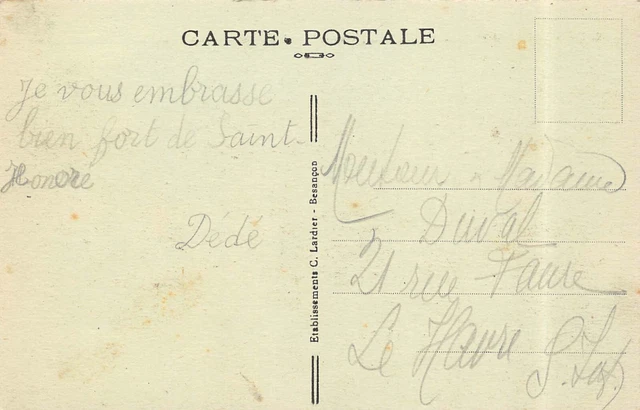 CARTE POSTALE
Je vous embrasse
bien fort de Saint-
Honoré
Dédé
Etablissements C. Lardier - Besançon
Monsieur Madame
Duval
21 rue Faure
Le Havre S. Inf.